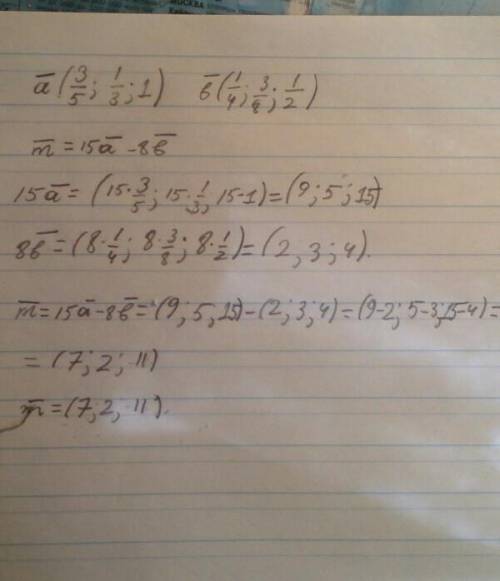 МОСКВА
a̅ (3/5; 1/3; 1) в̅ (1/4; 3/8; 1/2)
m̅ = 15a̅ - 8в̅
15a̅ = (15·3/5; 15·1/3; 15·1) = (9; 5; 15)
8в̅ = (8·1/4; 8·3/8; 8·1/2) = (2, 3; 4).
m̅ = 15a̅ - 8в̅ = (9; 5, 15) - (2; 3; 4) = (9-2; 5-3; 15-4) =
= (7; 2; 11)
m̅ = (7; 2, 11).